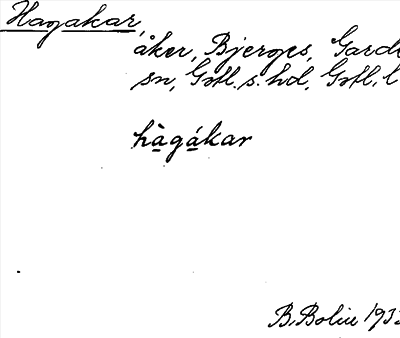 Hagakar
åker, Bjerges, Garde
sn, Gotl. s. hd, Gotl. l
hàgákar
B. Bolin 193